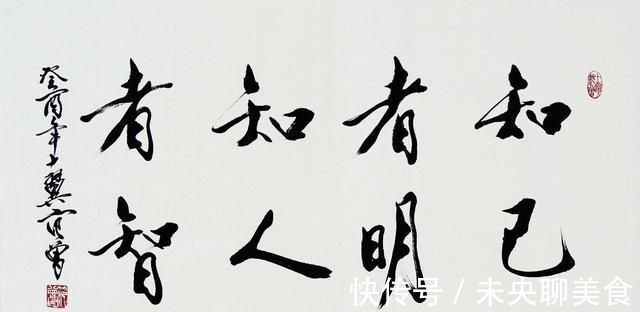 知己
者明
知人
者智
癸酉年十翼范曾
快传号 / 未央聊美食